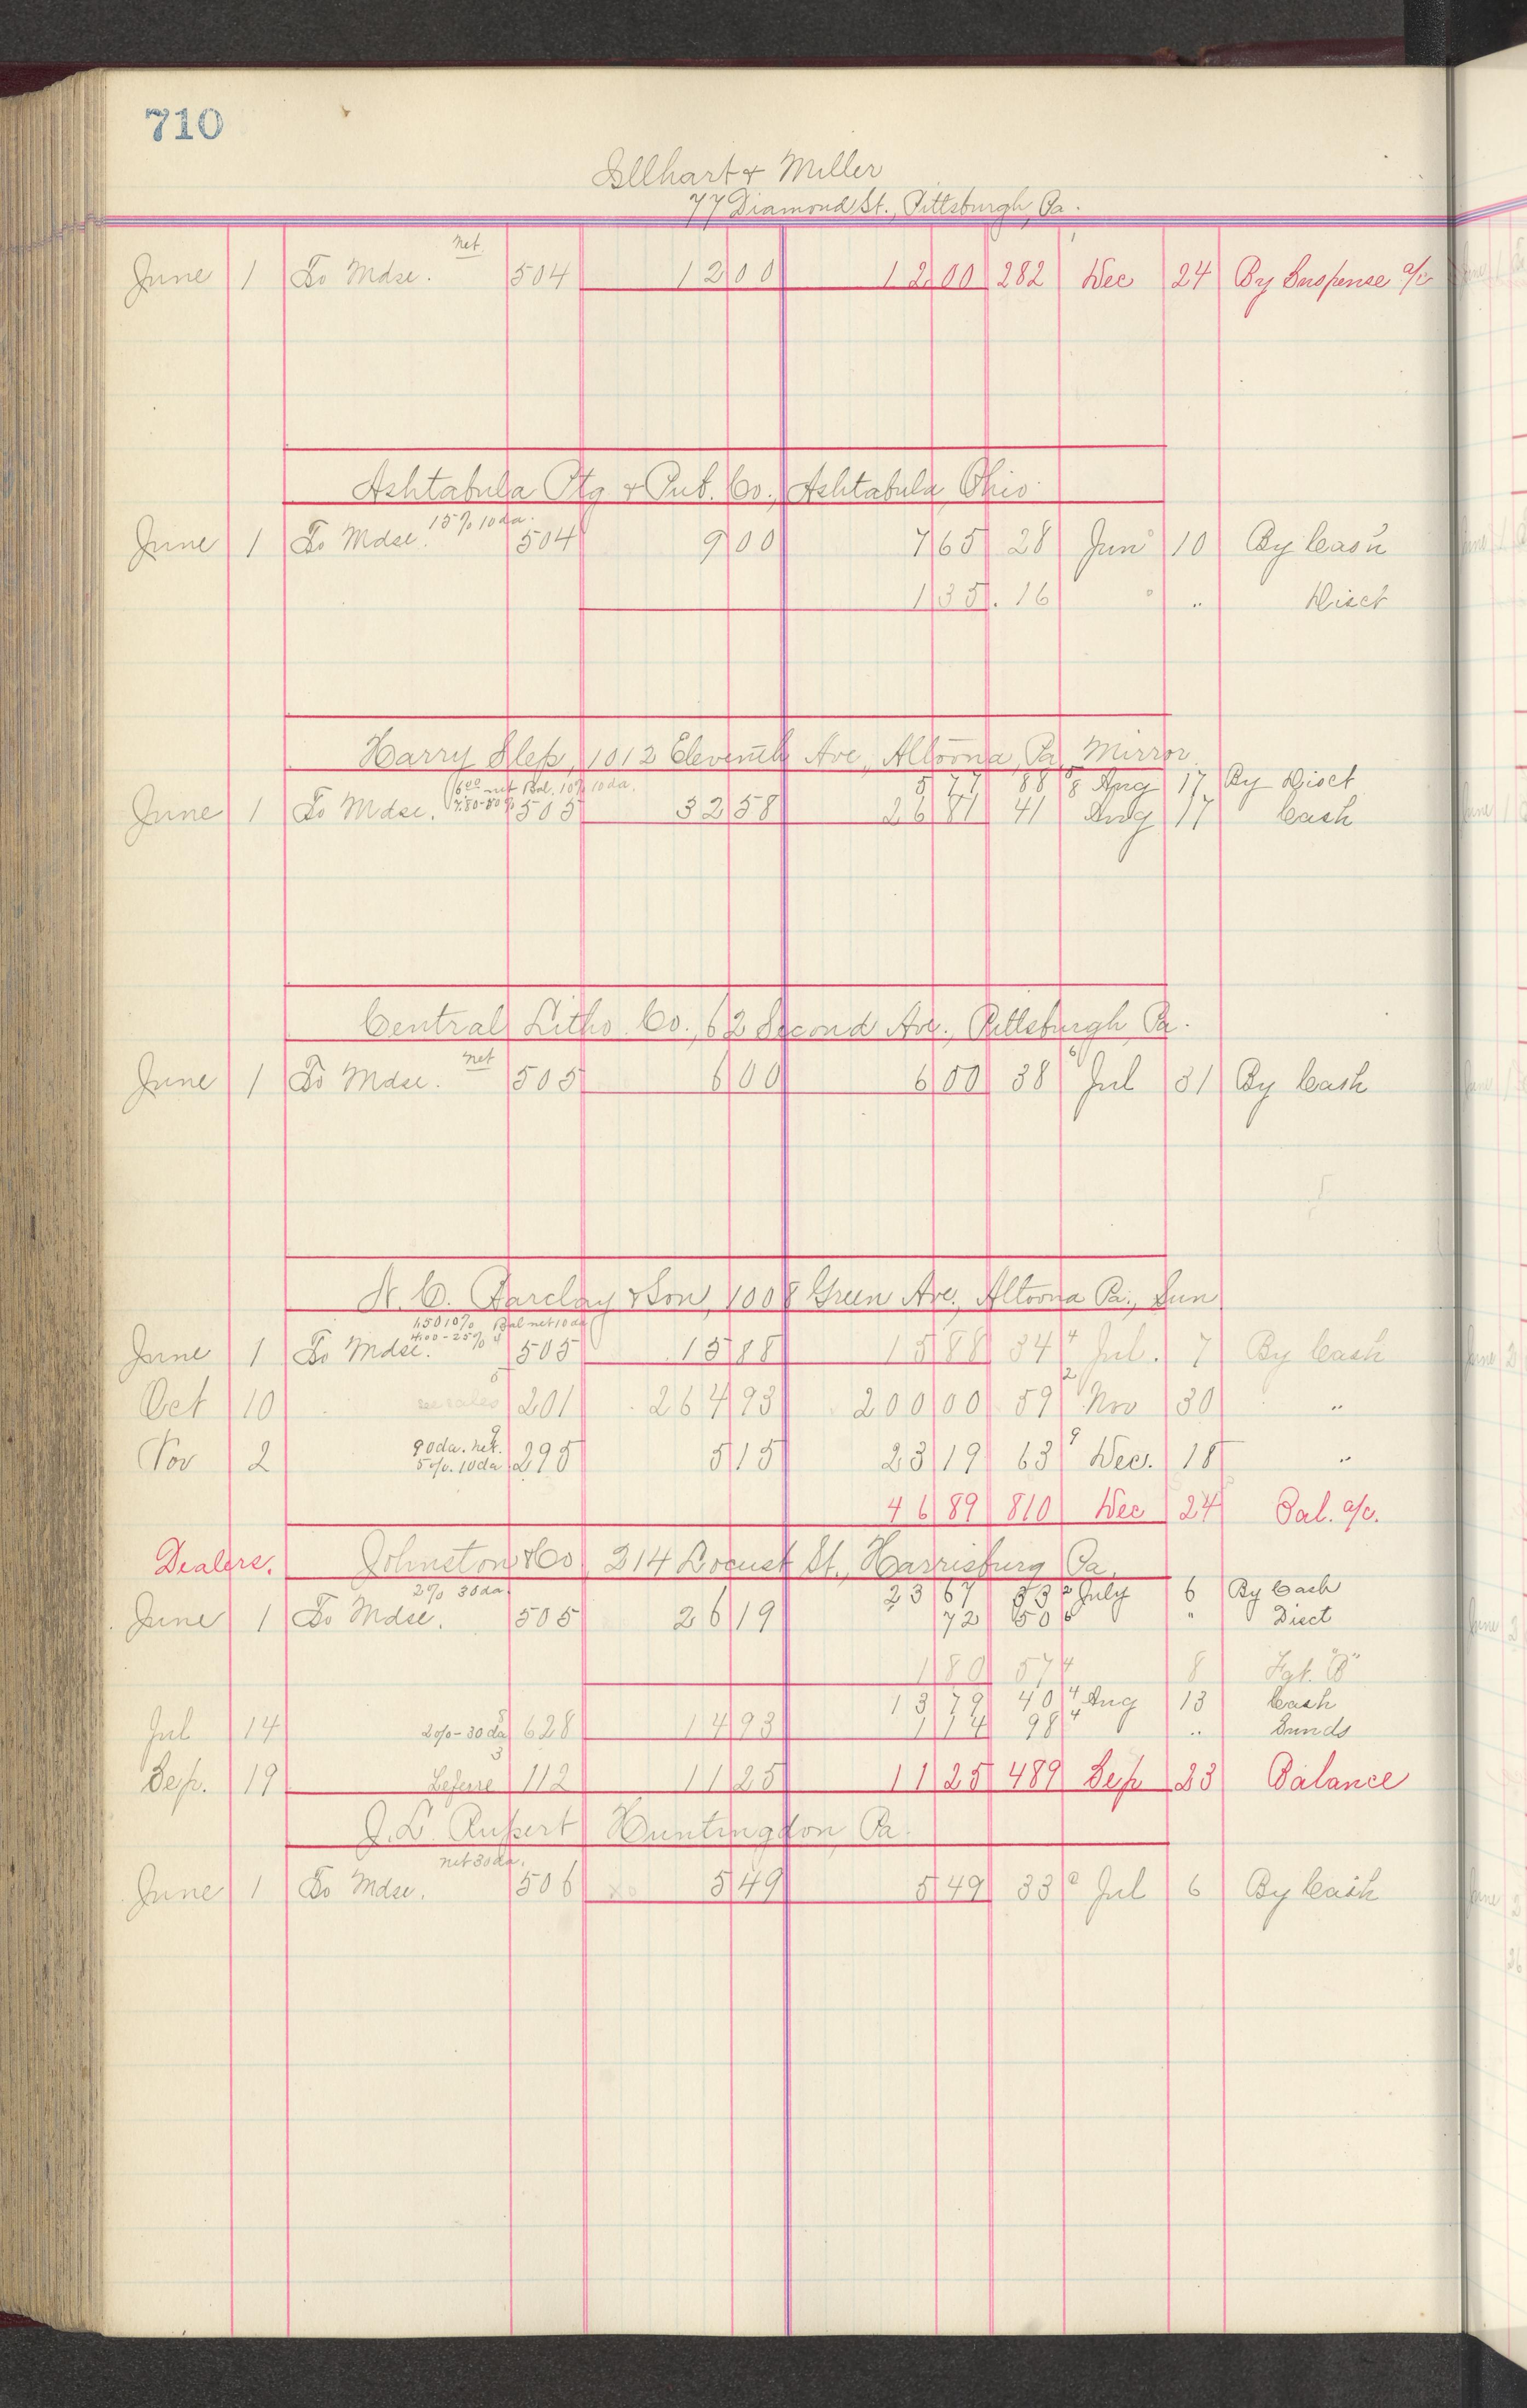 710
Illhart & Miller
77 Diamond St., Pittsburgh, Pa.
June 1 To Mdse. net 504 12 00 12 00 282 Dec 24 By Suspense a/c
Ashtabula Ptg & Pub. Co., Ashtabula, Ohio
June 1 To Mdse. 15% 10 da. 504 9 00 7 65 28 Jun 10 By Cash
1 35 16 " " Disct
Harry Slep, 1012 Eleventh Ave, Altoona, Pa. Mirror
5 77 88 8 Aug 17 By Disct
June 1 To Mdse. 6.00 net Bal. 10% 10 da. 505 32 58 26 81 41 Aug 17 Cash
Central Litho. Co., 62 Second Ave., Pittsburgh, Pa.
June 1 To Mdse. net 505 6 00 6 00 38 6 Jul 31 By Cash
N. C. Barclay & Son, 1008 Green Ave, Altoona Pa., Sun
10% Bal net 10 da
June 1 To Mdse. 505 15 88 15 88 34 4 Jul. 7 By Cash
Oct 10 201 264 93 200 00 59 2 Nov 30 "
Nov 2 90 da. net. 5%. 10 da 295 5 15 23 19 63 9 Dec. 18 "
46 89 810 Dec 24 Bal. a/c.
Dealers. Johnston & Co 214 Locust St., Harrisburg Pa.
2% 30 da. 23 67 33 2 July 6 By Cash
June 1 To Mdse. 505 26 19 72 50 6 " Disct
1 80 57 4 8 Fgt. "B"
13 79 40 4 Aug 13 Cash
Jul 14 2%-30 da 628 14 93 1 14 98 4 " Sunds
Sep. 19 112 11 25 11 25 489 Sep 23 Balance
J. L. Rupert Huntingdon Pa.
June 1 To Mdse. net 30 da. 506 5 49 5 49 33 2 Jul 6 By Cash